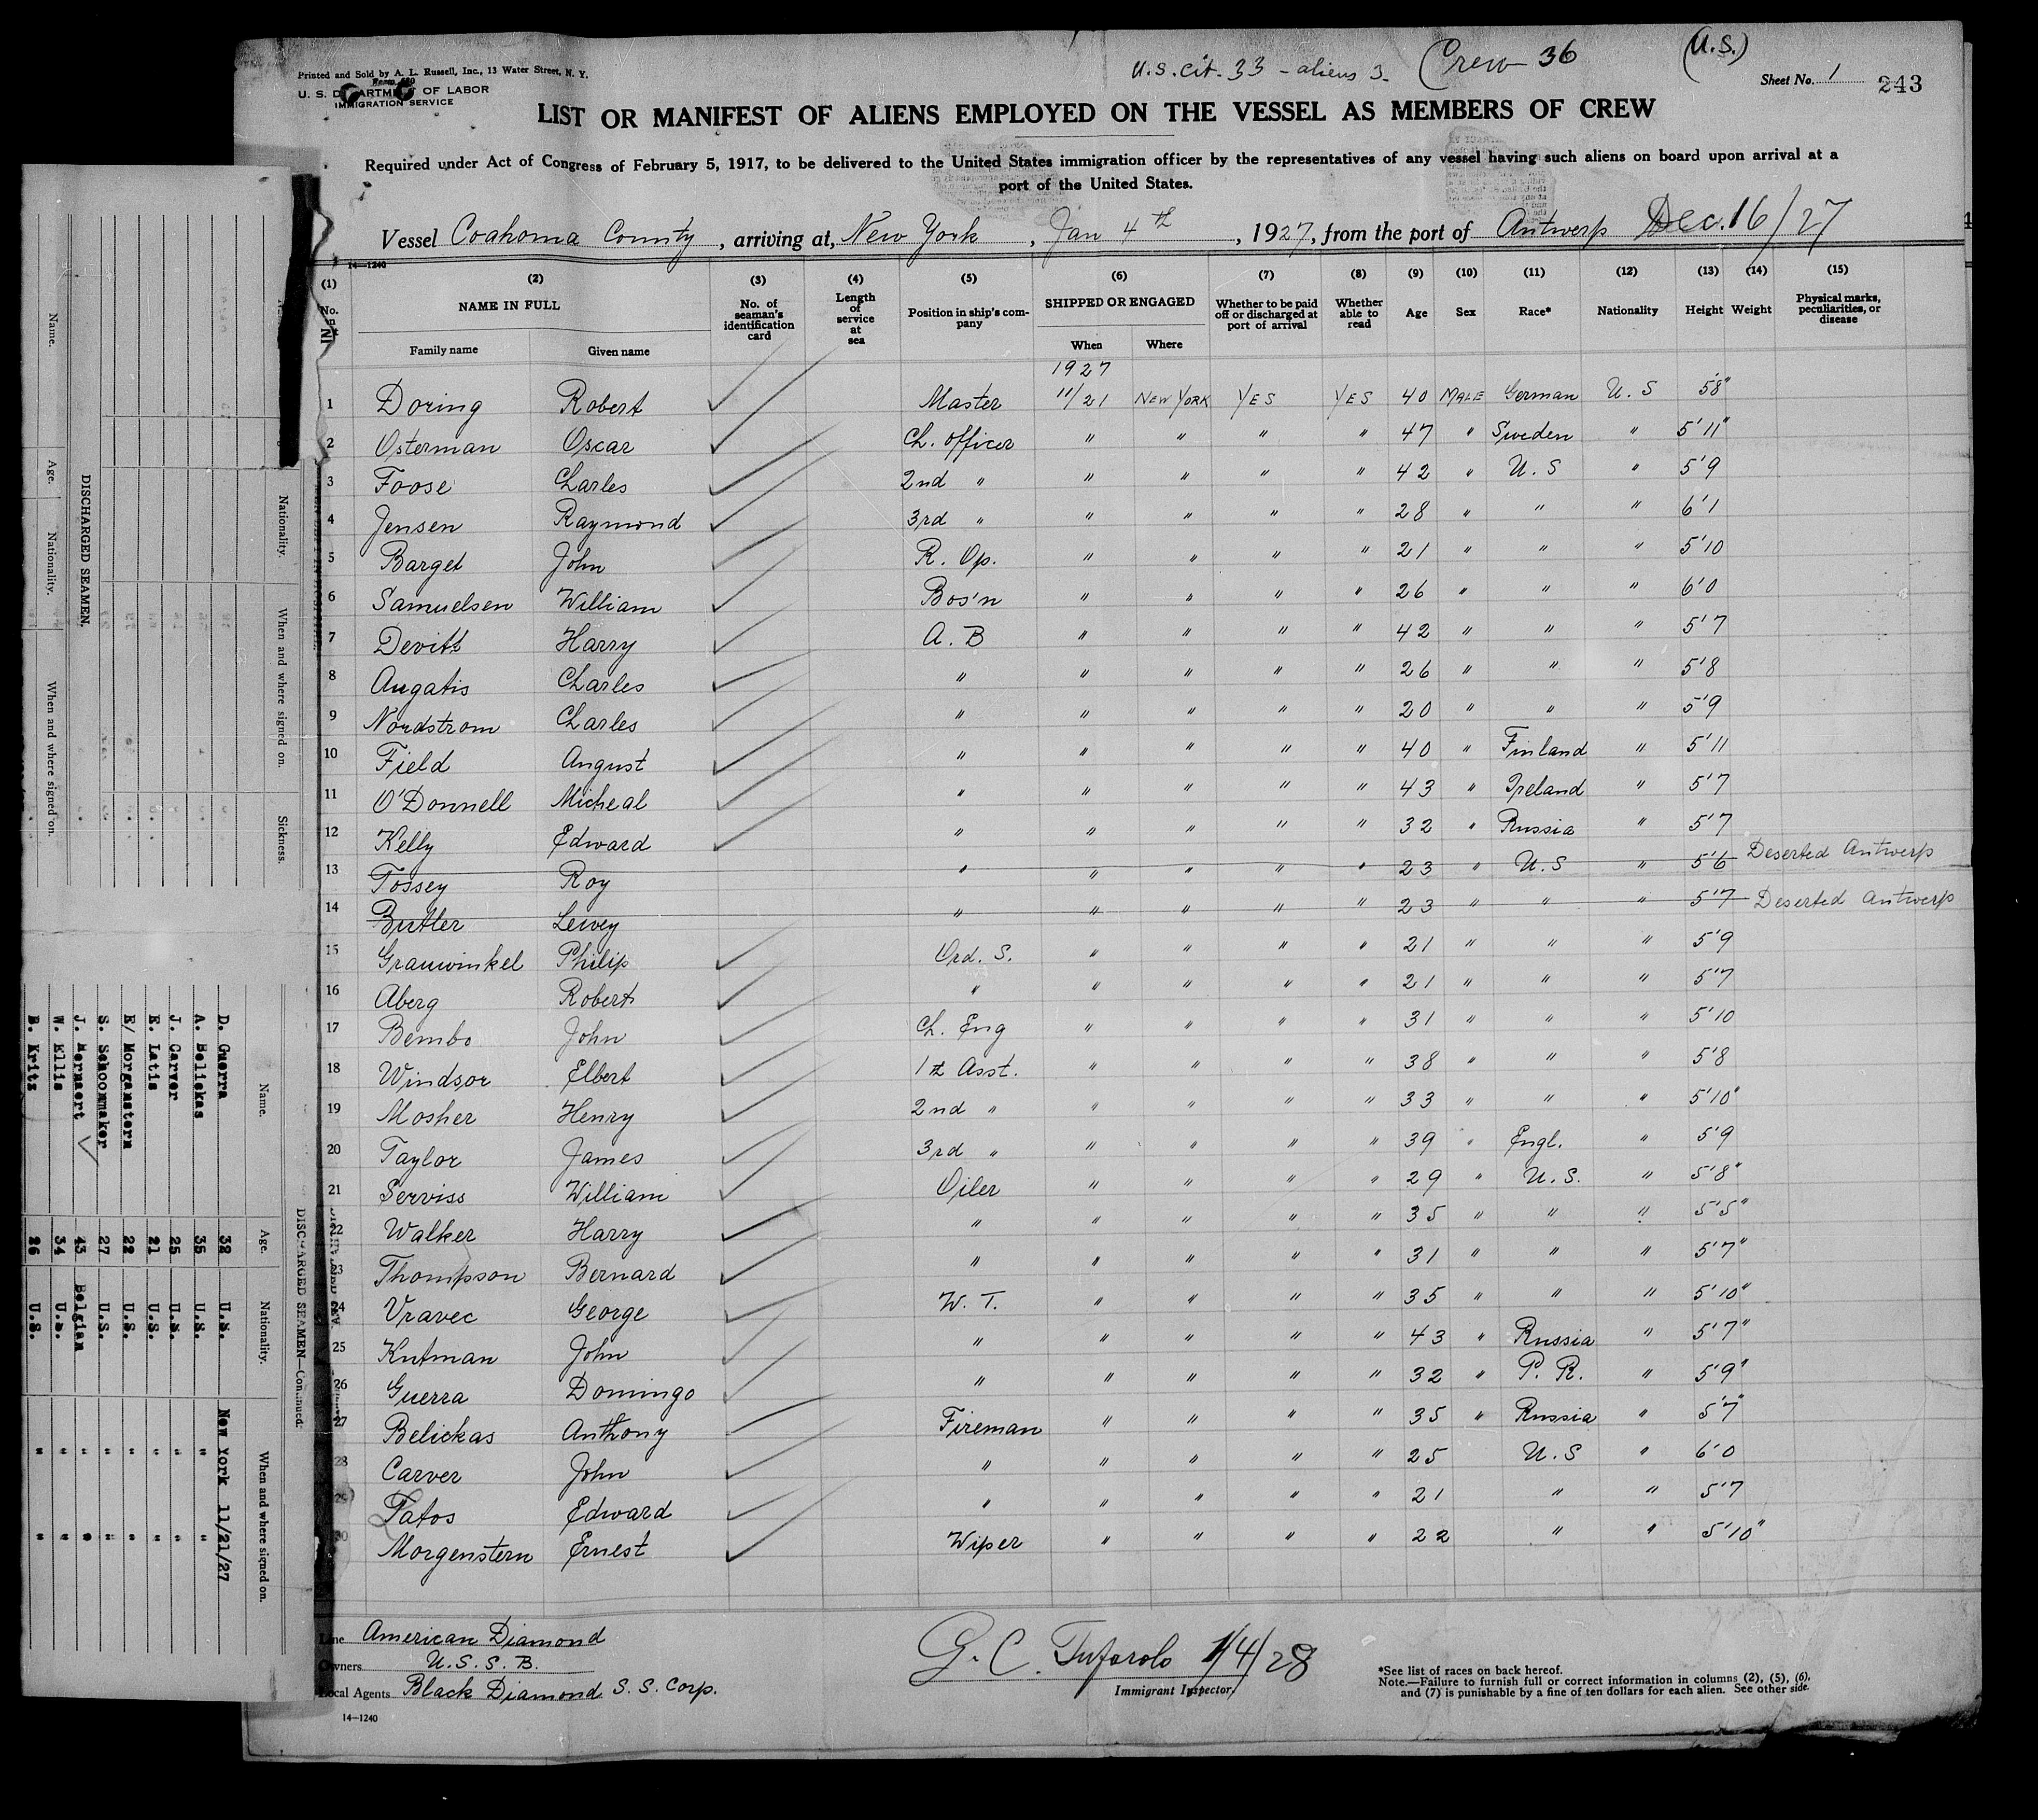 Printed and Sold by A. L. Russell, Inc., 13 Water Street, N. Y.
U. S. DEPARTMENT OF LABOR
IMMIGRATION SERVICE
U.S. cit. 33 - aliens 3. Crew 36 (U.S.)
Sheet No. 1 243
LIST OR MANIFEST OF ALIENS EMPLOYED ON THE VESSEL AS MEMBERS OF CREW
Required under Act of Congress of February 5, 1917, to be delivered to the United States immigration officer by the representatives of any vessel having such aliens on board upon arrival at a
port of the United States.
Vessel Coahoma County, arriving at, New York, Jan 4th, 1927, from the port of Antwerp Dec. 16/27
14—1240
(1) (2) (3) (4) (5) (6) (7) (8) (9) (10) (11) (12) (13) (14) (15)
No. NAME IN FULL No. of seaman's identification card Length of service at sea Position in ship's company SHIPPED OR ENGAGED Whether to be paid off or discharged at port of arrival Whether able to read Age Sex Race* Nationality Height Weight Physical marks, peculiarities, or disease
Family name Given name When Where
1927
1 Doring Robert Master 11/21 New York Yes Yes 40 Male German U. S 5'8"
2 Osterman Oscar Ch. Officer " " " " 47 " Sweden " 5'11"
3 Foose Charles 2nd " " " " " 42 " U. S " 5'9
4 Jensen Raymond 3rd " " " " " 28 " " " 6'1
5 Barget John R. Op. " " " " 21 " " " 5'10
6 Samuelsen William Bos'n " " " " 26 " " " 6'0
7 Devitt Harry A. B " " " " 42 " " " 5'7
8 Augatis Charles " " " " " 26 " " " 5'8
9 Nordstrom Charles " " " " " 20 " " " 5'9
10 Field August " " " " " 40 " Finland " 5'11
11 O'Donnell Micheal " " " " " 43 " Ireland " 5'7
12 Kelly Edward " " " " " 32 " Russia " 5'7
13 Tossey Roy " " " " " 23 " U. S " 5'6 Deserted Antwerp
14 Butler Lewey " " " " " 23 " " " 5'7 Deserted Antwerp
15 Grauwinkel Philip Ord. S. " " " " 21 " " " 5'9
16 Aberg Robert " " " " " 21 " " " 5'7
17 Bembo John Ch. Eng " " " " 31 " " " 5'10
18 Windsor Elbert 1st Asst. " " " " 38 " " " 5'8
19 Mosher Henry 2nd " " " " " 33 " " " 5'10"
20 Taylor James 3rd " " " " " 39 " Engl. " 5'9
21 Serviss William Oiler " " " " 29 " U. S. " 5'8"
22 Walker Harry " " " " " 35 " " " 5'5"
23 Thompson Bernard " " " " " 31 " " " 5'7"
24 Vravec George W. T. " " " " 35 " " " 5'10"
25 Kutman John " " " " " 43 " Russia " 5'7"
26 Guerra Domingo " " " " " 32 " P. R. " 5'9"
27 Belickas Anthony Fireman " " " " 35 " Russia " 5'7"
28 Carver John " " " " " 25 U. S " 6'0
29 Tatos Edward " " " " " 21 " " 5'7
30 Morgenstern Ernest Wiper " " " " 22 " " 5'10"
Line American Diamond
Owners U. S. S. B.
Local Agents Black Diamond S. S. Corp.
14—1240
G. C. Tufarolo 1/4/28
Immigrant Inspector
*See list of races on back hereof.
Note.—Failure to furnish full or correct information in columns (2), (5), (6),
and (7) is punishable by a fine of ten dollars for each alien. See other side.
Nationality. When and where signed on. Sickness.
DISCHARGED SEAMEN.
Name. Age. Nationality. When and where signed on.
DISCHARGED SEAMEN—Continued.
Name. Age. Nationality. When and where signed on.
D. Guerra 32 U.S. New York 11/21/27
A. Belickas 35 U.S. " "
J. Carver 25 U.S. " "
E. Latis 21 U.S. " "
E/ Morganstern 22 U.S. " "
S. Schoonmaker 27 U.S. " "
J. Mermaert 43 Belgian " "
W. Ellis 34 U.S. " "
B. Kritz 26 U.S. " "